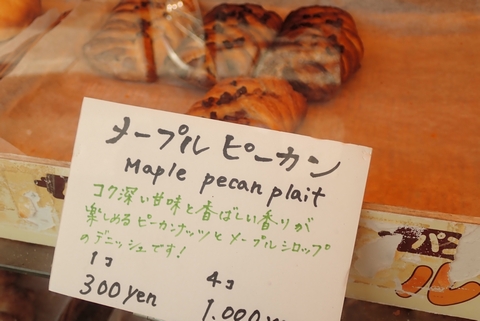 メープルピーカン
Maple pecan plait
コク深い甘味と香ばしい香りが
楽しめるピーカンナッツとメープルシロップ
のデニッシュです!
1コ 4コ
300yen 1.000
パン